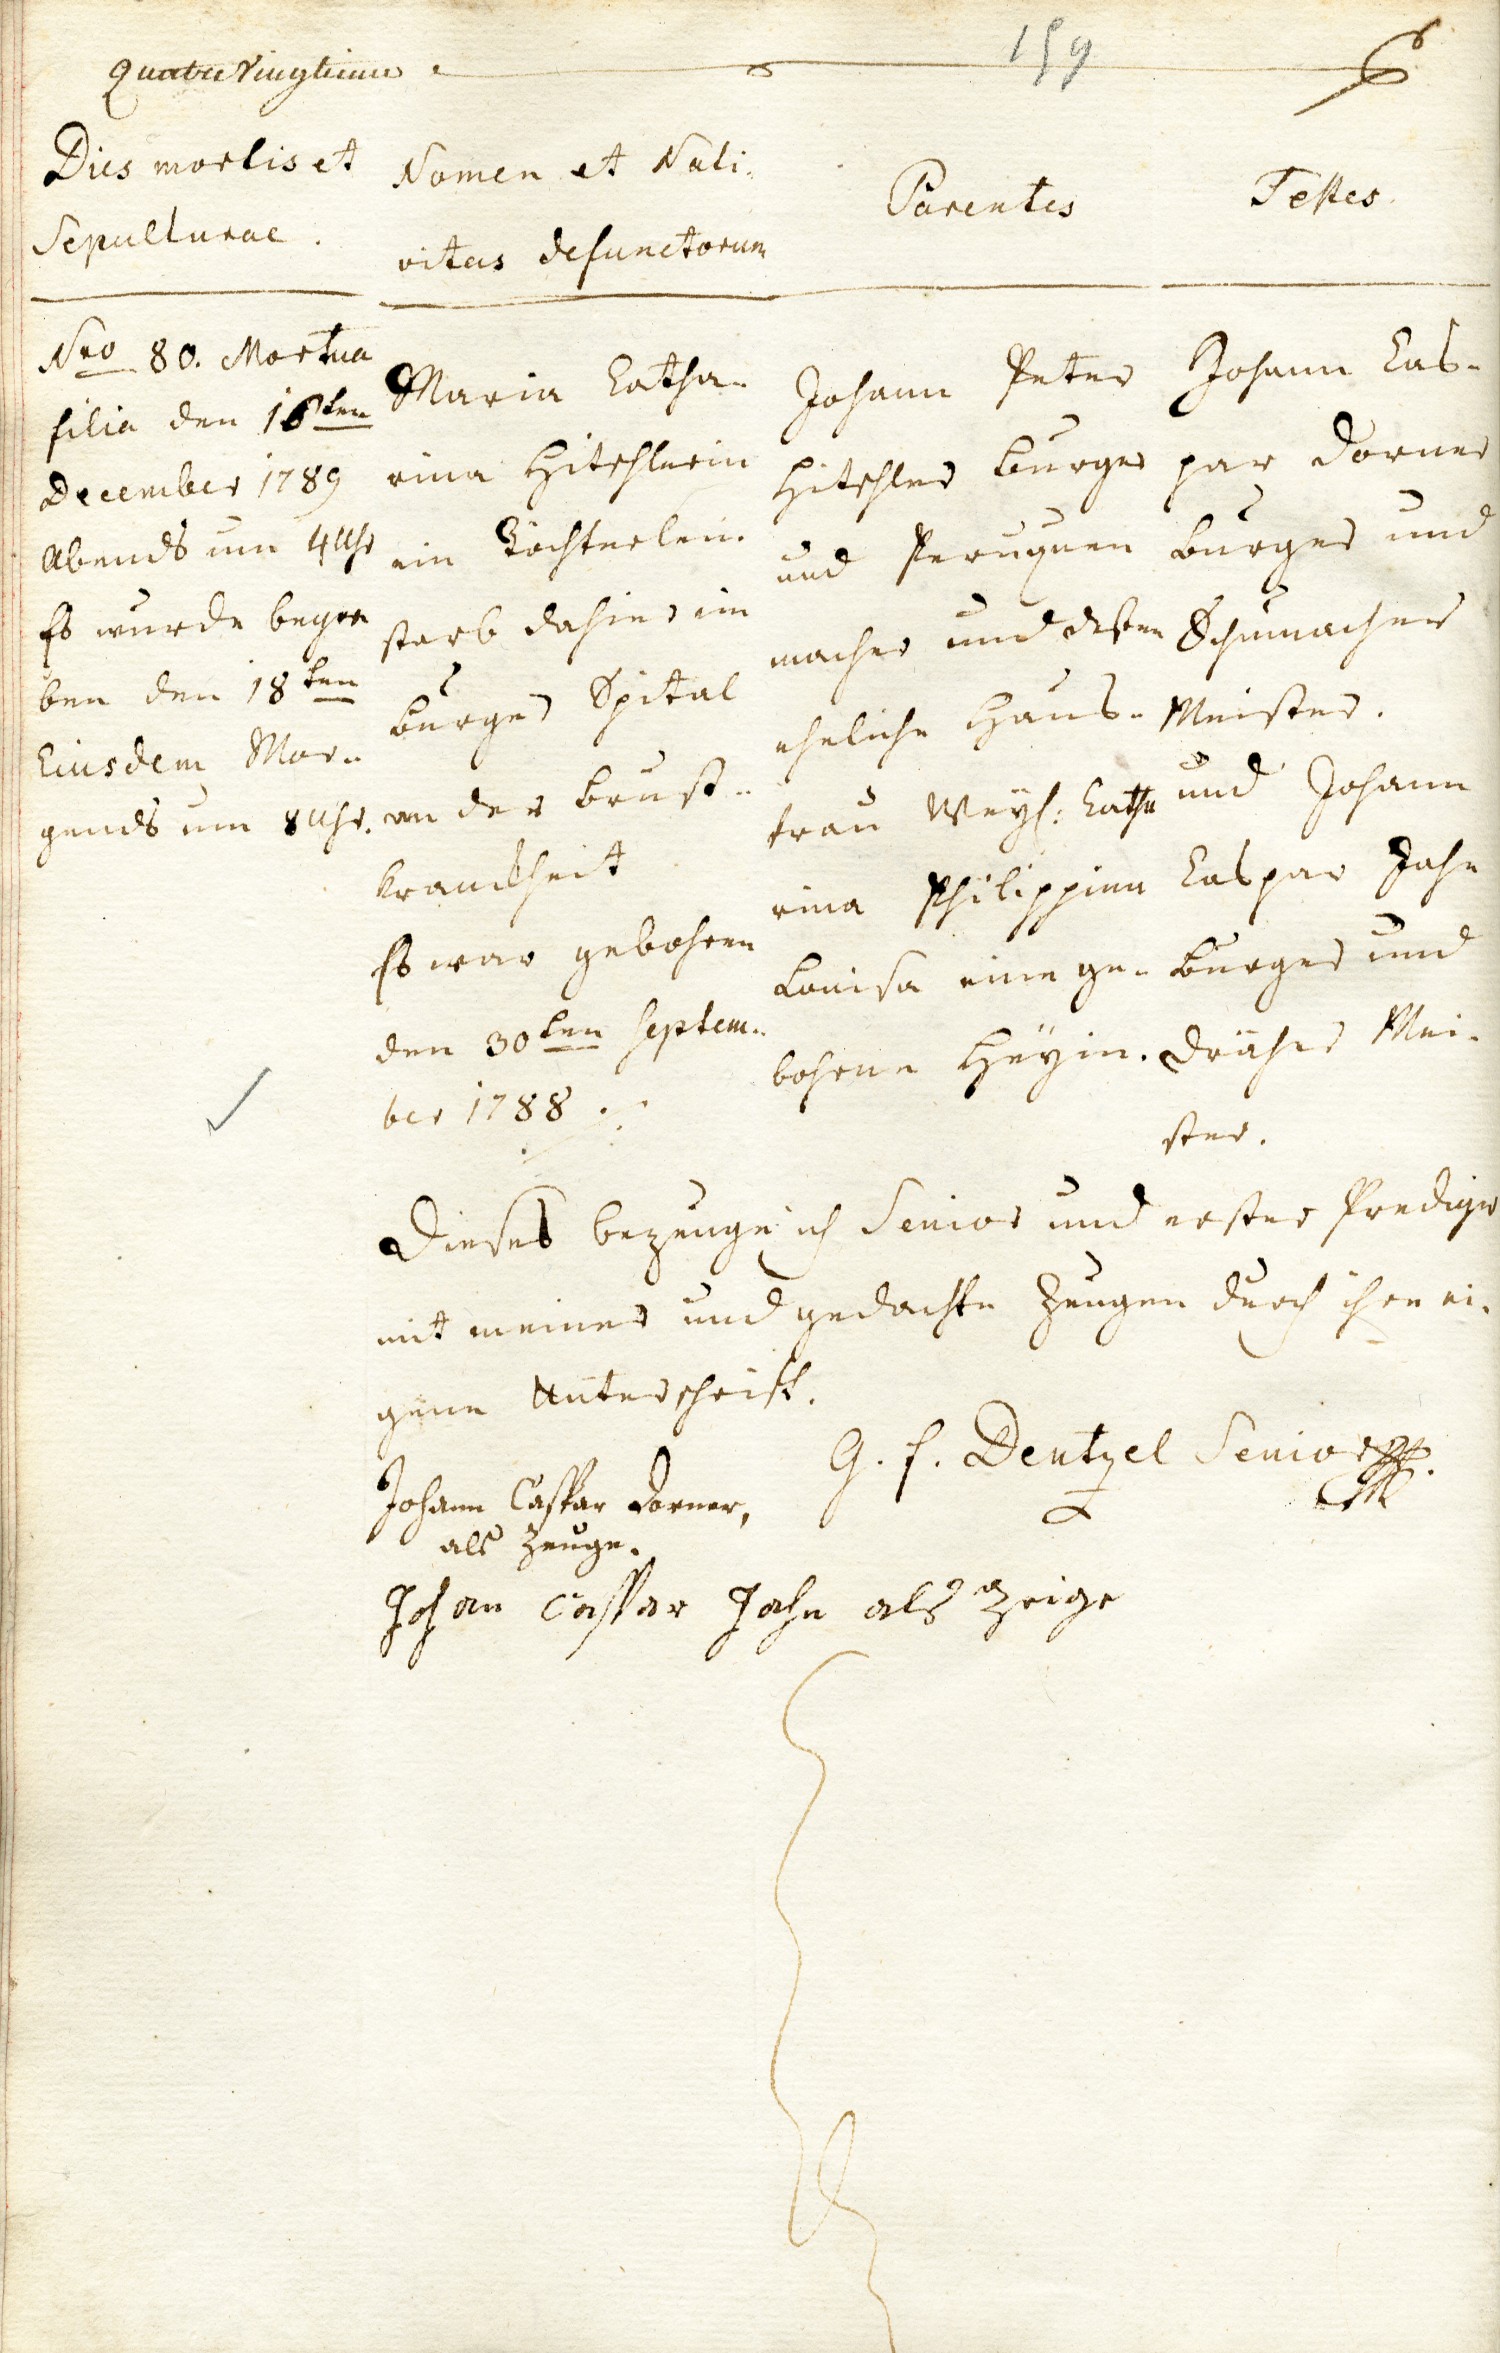 Quatre Vingtieme
159
Dies mortis et
Sepulturae.
Nomen et Nati-
vitas defunctorum
Parentes
Testes.
Nro 80. Mortua
filia den 16ten
December 1789
Abends um 4 Uhr
Es wurde begra
ben den 18ten
Eiusdem Mor-
gends um 8 Uhr.
Maria Catha-
rina Hitschlerin
ein Töchterlein
starb dahier im
Burger Spital
an der Brust-
kranckheit
Es war gebohren
den 30ten Septem-
ber 1788
Johann Peter
Hitschler Burger
und Peruquen
macher und deßen
eheliche Haus-
frau Weyl: Catha
rina Philippina
Louisa eine ge-
bohrne Heyin.
Johann Cas-
par Dorner
Burger und
Schumacher
Meister.
und Johann
Caspar Jahn
Burger und
Dräher Mei-
ster.
Dieses bezeuge ich Senior und erster Prediger
mit meiner und gedachte Zeugen durch ihre ei-
gene Unterschrift.
G. f. Dentzel Senior
Johann Caspar Dorner,
als Zeuge.
Johan Caspar Jahn als Zeige